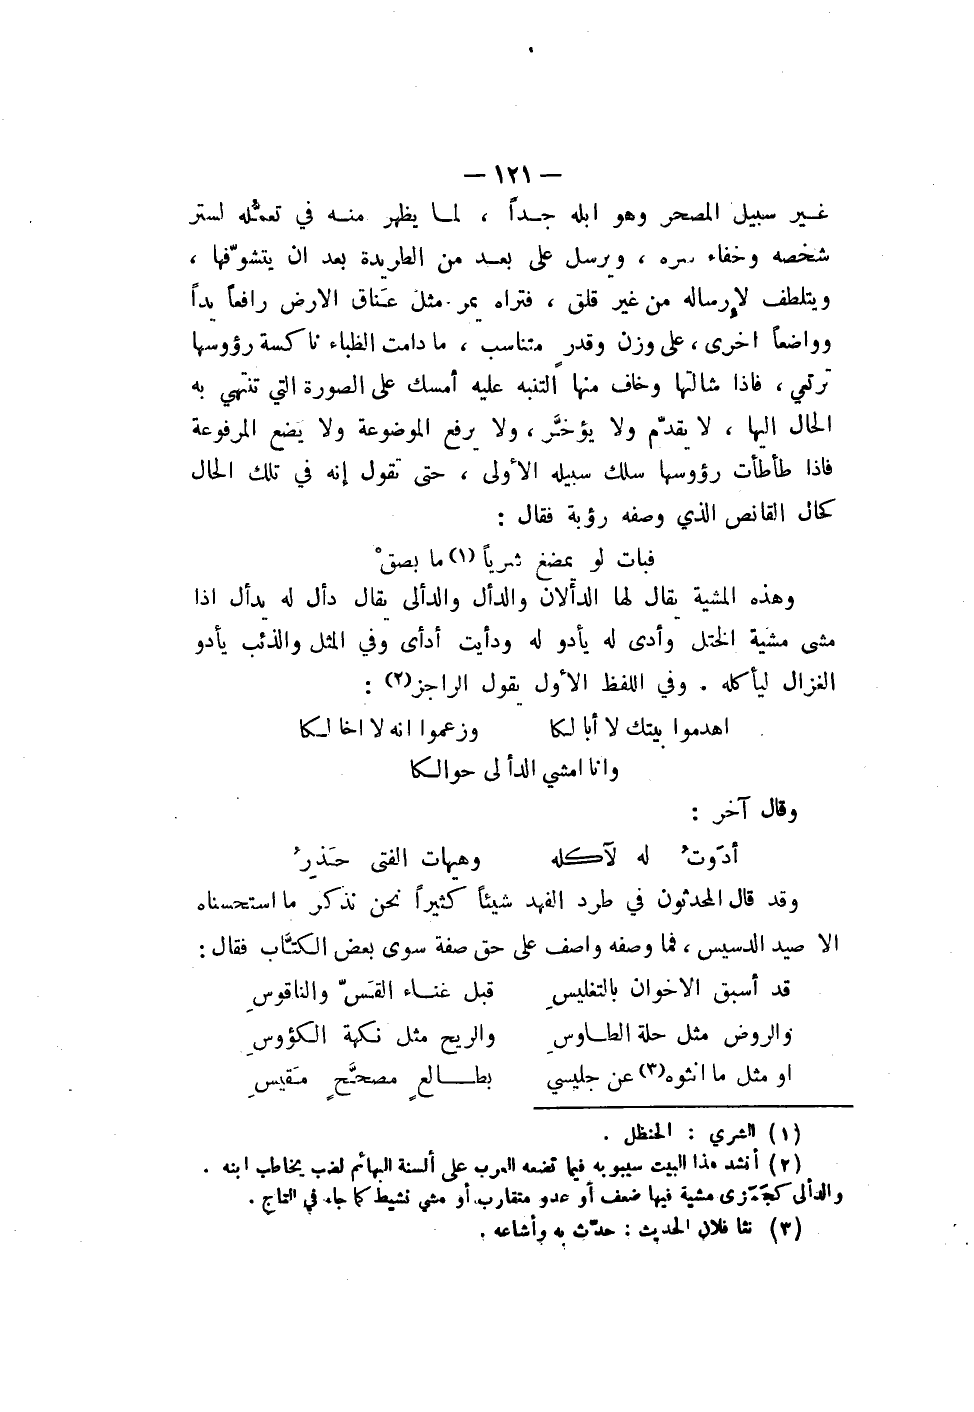 — ١٢١ —
غير سبيل المصحر وهو ابله جداً ، لما يظهر منه في تعمثّله لستر
شخصه وخفاء سره ، ويرسل على بعد من الطريدة بعد ان يتشوّفها ،
ويتلطف لإرساله من غير قلق ، فتراه يمر مثل عناق الارض رافعاً يداً
وواضعاً اخرى ، على وزن وقدرٍ متناسب ، ما دامت الظباء ناكسة رؤوسها
ترتعي ، فاذا شالتها وخاف منها التنبه عليه أمسك على الصورة التي تنتهي به
الحال اليها ، لا يقدّم ولا يؤخَّر ، ولا يرفع الموضوعة ولا يضع المرفوعة
فاذا طأطأت رؤوسها سلك سبيله الأولى ، حتى تقول إنه في تلك الحال
كحال القانص الذي وصفه رؤبة فقال :
فبات لو يمضغ شرياً (١) ما بصقْ
وهذه المشية يقال لها الدألان والدأل والدألى يقال دأل له يدأل اذا
مشى مشية الختل وأدى له يأدو له ودأيت أدأى وفي المثل والذئب يأدو
الغزال ليأكله . وفي اللفظ الأول يقول الراجز (٢) :
اهدموا بيتك لا أبا لكا وزعموا انه لا اخا لكا
وانا امشي الدألى حوالكا
وقال آخر :
أدَوتُ له لآكله وهيهات الفتى حَذرُ
وقد قال المحدثون في طرد الفهد شيئاً كثيراً نحن نذكر ما استحسناه
الا صيد الدسيس ، فما وصفه واصف على حق صفة سوى بعض الكتَّاب فقال :
قد أسبق الاخوان بالتغليسِ قبل غناء القَسّ والناقوسِ
والروض مثل حلة الطاوسِ والريح مثل نكهة الكؤوسِ
او مثل ما انثوه (٣) عن جليسي بطالعٍ مصحَّحٍ مَقيسِ
(١) الشري : الحنظل .
(٢) أنشد هذا البيت سيبويه فيما تضعه العرب على ألسنة البهائم لضب يخاطب ابنه .
والدألى كجَمَزى مشية فيها ضعف أو عدو متقارب أو مشي نشيط كما جاء في التاج .
(٣) نثا فلان الحديث : حدّث به وأشاعه .